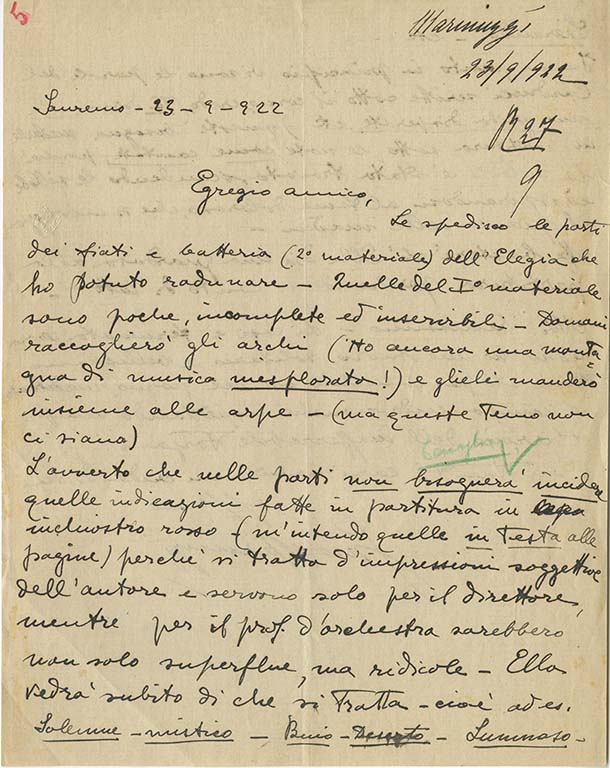 5
Marinuzzi
23/9/922
Sanremo - 23 - 9 - 922
R 27
9
Egregio amico,
Le spedisco le parti
dei fiati e batteria (2º materiale) dell'Elegia che
ho potuto radunare - Quelle del Iº materiale
sono poche, incomplete ed inservibili - Domani
raccoglierò gli archi (Ho ancora una monta=
gna di musica inesplorata!) e glieli manderò
insieme alle arpe - (ma queste temo non
ci siano)
L'avverto che nelle parti non bisognerà incidere
quelle indicazioni fatte in partitura in
inchiostro rosso - (m'intendo quelle in testa alle
pagine) perchè si tratta d'impressioni soggettive
dell'autore e servono solo per il direttore,
mentre per il prof. d'orchestra sarebbero
non solo superflue, ma ridicole - Ella
vedrà subito di che si tratta - cioè ad es.
Solenne - mistico - Buio - Deserto - Luminoso -